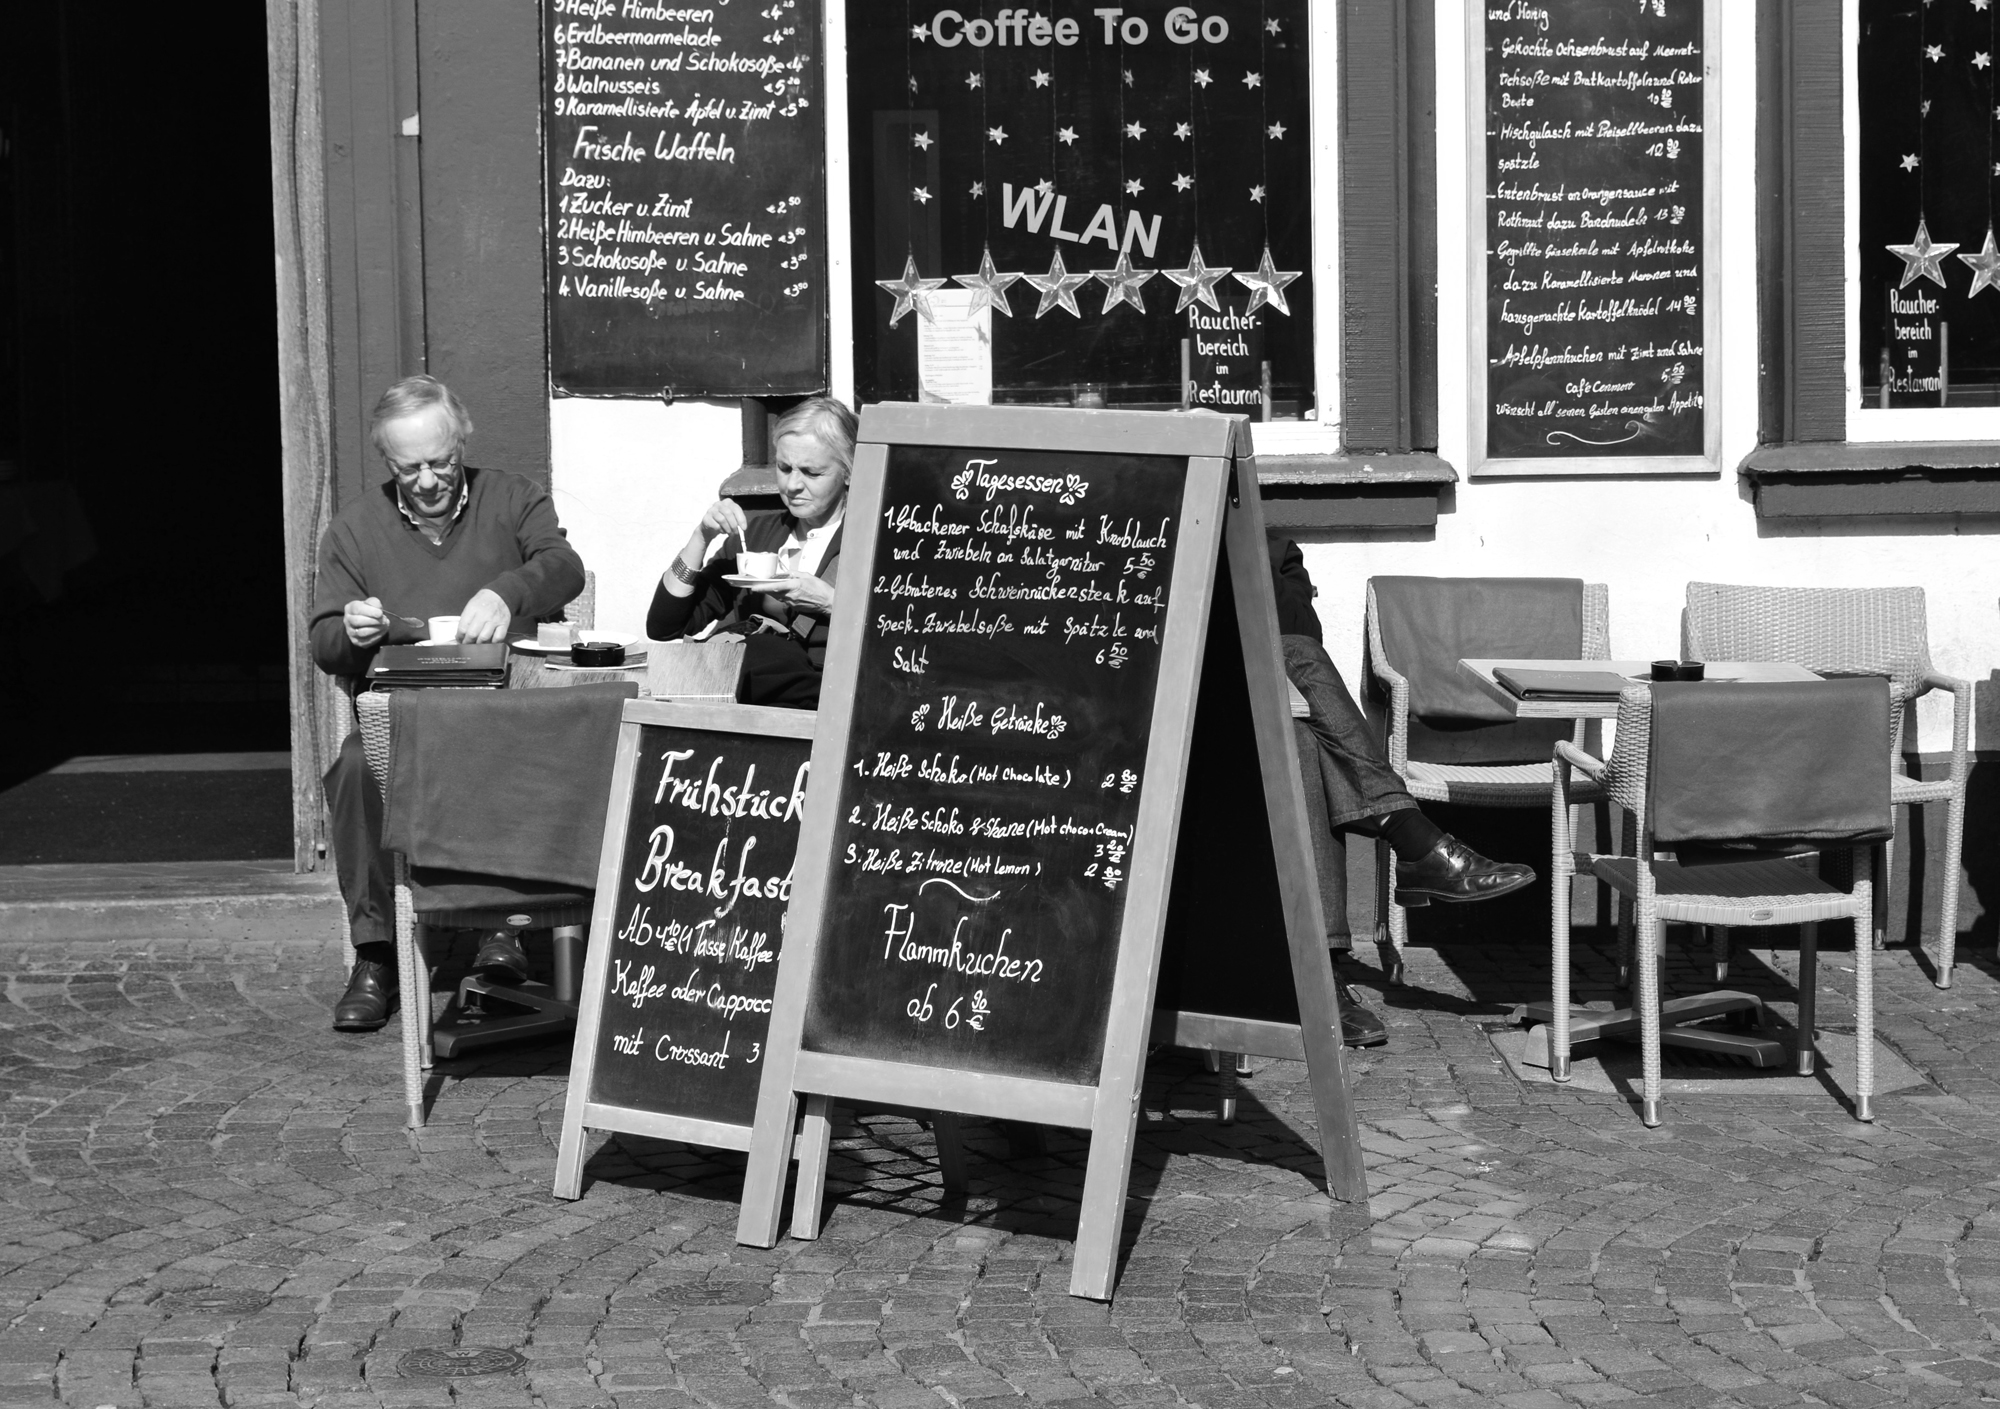 5 Heiße Himbeeren €4 20
6 Erdbeermarmelade €4 20
7 Bananen und Schokosoße €4
8 Walnusseis €5 20
9 Karamellisierte Äpfel u. Zimt €5 50
Frische Waffeln
Dazu:
1 Zucker u. Zimt €2 50
2 Heiße Himbeeren u Sahne €3 50
3 Schokosoße u. Sahne €3 50
4. Vanillesoße u. Sahne €3 50
Coffee To Go
WLAN
Raucher-
bereich
im
Restaurant
und Honig 7
- Gekochte Ochsenbrust auf Meerret-
tichsoße mit Bratkartoffeln und Roter
Beete 10 90 €
- Hischgulasch mit Preisellbeeren dazu
spätzle 12 90 €
- Entenbrust an Orangensauce mit
Rothraut dazu Bandnudeln 13 90 €
- Gegrillte Gänsekeule mit Apfelrotkohl
dazu Karamellisierte Maronen und
hausgemachte Kartoffelknödel 14 90 €
- Apfelpfannkuchen mit Zimt und Sahne
5 50 €
Café
Wünscht all seinen Gästen einen guten Appetit!
Raucher-
bereich
im
Restaurant
Tagesessen
1. Gebackener Schafskäse mit Knoblauch
und Zwiebeln an Salatgarnitur 5 50 €
2. Gebratenes Schweinrückensteak auf
Speck-Zwiebelsoße mit Spätzle und
Salat 6 50 €
Heiße Getränke
1. Heiße Schoko (Hot Chocolate) 2 80 €
2. Heiße Schoko & Shane (Hot choco+Cream)
3 20 €
3. Heiße Zitrone (Hot Lemon) 2 80 €
Flammkuchen
ab 6 90 €
Frühstück
Breakfast
Ab 4 10 € (1 Tasse Kaffee
Kaffee oder Cappocc
mit Crossant 3